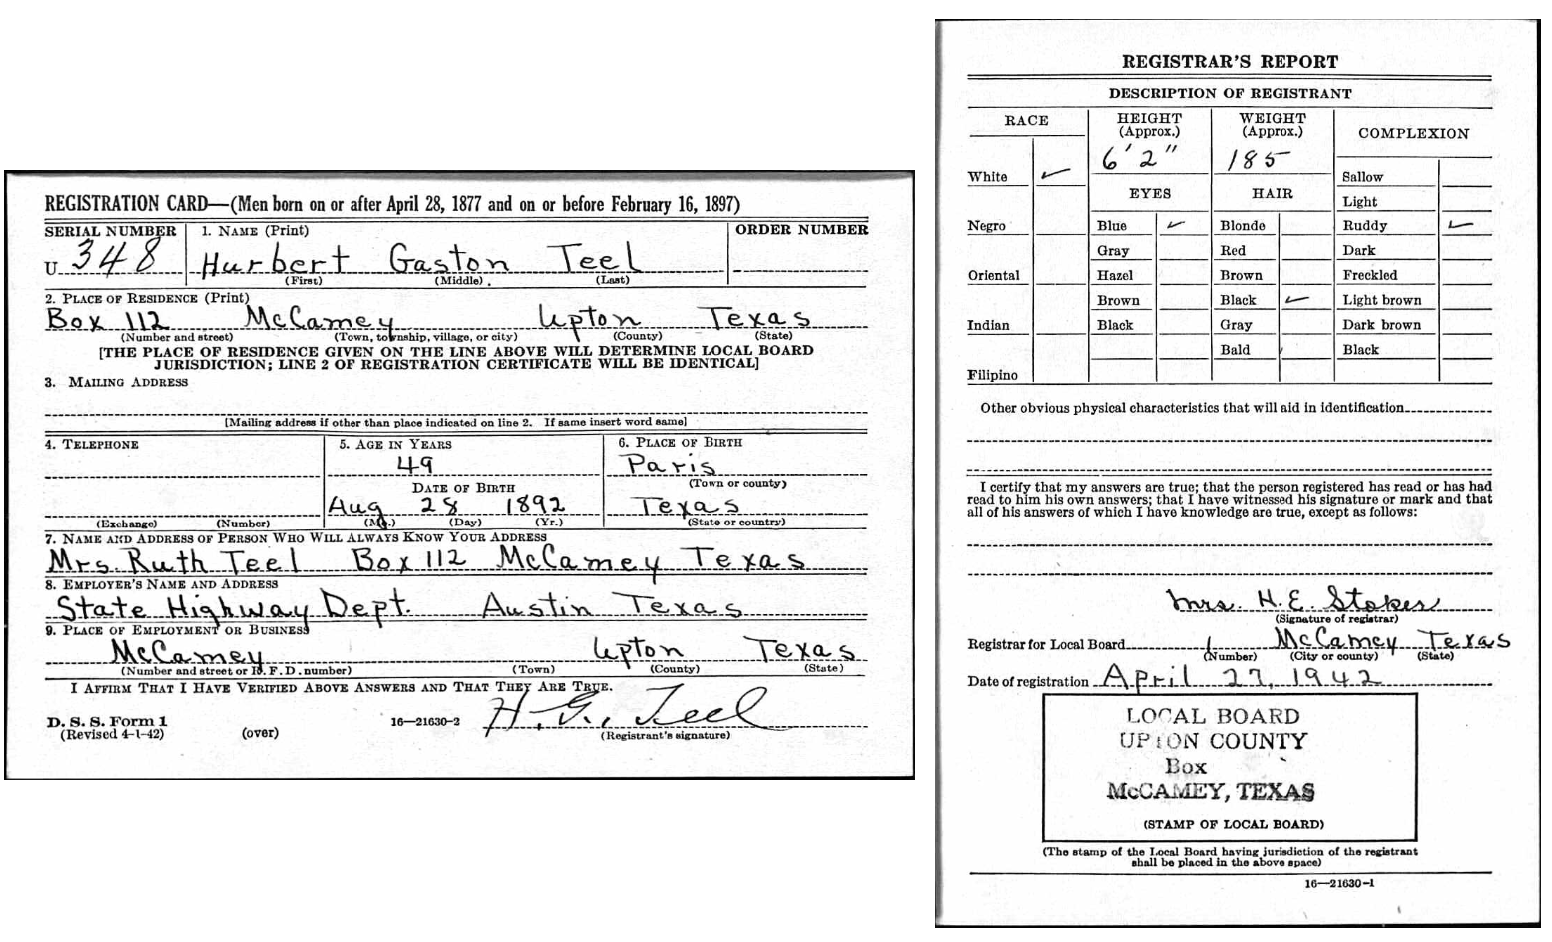 REGISTRATION CARD—(Men born on or after April 28, 1877 and on or before February 16, 1897)
SERIAL NUMBER 1. NAME (Print) ORDER NUMBER
U 348 Hurbert Gaston Teel
(First) (Middle) (Last)
2. PLACE OF RESIDENCE (Print)
Box 112 McCamey Upton Texas
(Number and street) (Town, township, village, or city) (County) (State)
[THE PLACE OF RESIDENCE GIVEN ON THE LINE ABOVE WILL DETERMINE LOCAL BOARD
JURISDICTION; LINE 2 OF REGISTRATION CERTIFICATE WILL BE IDENTICAL]
3. MAILING ADDRESS
[Mailing address if other than place indicated on line 2. If same insert word same]
4. TELEPHONE 5. AGE IN YEARS 6. PLACE OF BIRTH
49 Paris
DATE OF BIRTH (Town or county)
Aug 28 1892 Texas
(Exchange) (Number) (Mo.) (Day) (Yr.) (State or country)
7. NAME AND ADDRESS OF PERSON WHO WILL ALWAYS KNOW YOUR ADDRESS
Mrs. Ruth Teel Box 112 McCamey Texas
8. EMPLOYER'S NAME AND ADDRESS
State Highway Dept. Austin Texas
9. PLACE OF EMPLOYMENT OR BUSINESS
McCamey Upton Texas
(Number and street or R. F. D. number) (Town) (County) (State)
I AFFIRM THAT I HAVE VERIFIED ABOVE ANSWERS AND THAT THEY ARE TRUE.
D. S. S. Form 1 16—21630-2 H. G. Teel
(Revised 4-1-42) (over) (Registrant's signature)
REGISTRAR'S REPORT
DESCRIPTION OF REGISTRANT
RACE HEIGHT (Approx.) WEIGHT (Approx.) COMPLEXION
6' 2" 185
White ✓ Sallow
EYES HAIR Light
Negro Blue ✓ Blonde Ruddy ✓
Gray Red Dark
Oriental Hazel Brown Freckled
Brown Black ✓ Light brown
Indian Black Gray Dark brown
Bald Black
Filipino
Other obvious physical characteristics that will aid in identification
I certify that my answers are true; that the person registered has read or has had
read to him his own answers; that I have witnessed his signature or mark and that
all of his answers of which I have knowledge are true, except as follows:
Mrs. H. E. Stokes
(Signature of registrar)
Registrar for Local Board 1 McCamey Texas
(Number) (City or county) (State)
Date of registration April 27, 1942
LOCAL BOARD
UPTON COUNTY
Box
McCAMEY, TEXAS
(STAMP OF LOCAL BOARD)
(The stamp of the Local Board having jurisdiction of the registrant
shall be placed in the above space)
16—21630-1